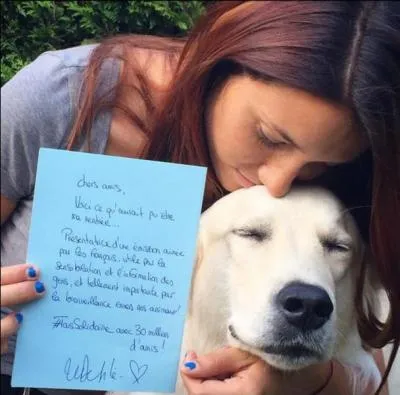 chers amis,
Voici ce qu'aurait pu être
sa rentrée...
Présentatrice d'une émission aimée
par les français, utile par la
sensibilisation et l'information des
gens, et tellement importante par
la bienveillance envers nos animaux!
#JeSuisSolidaire avec 30 millions
d'amis!